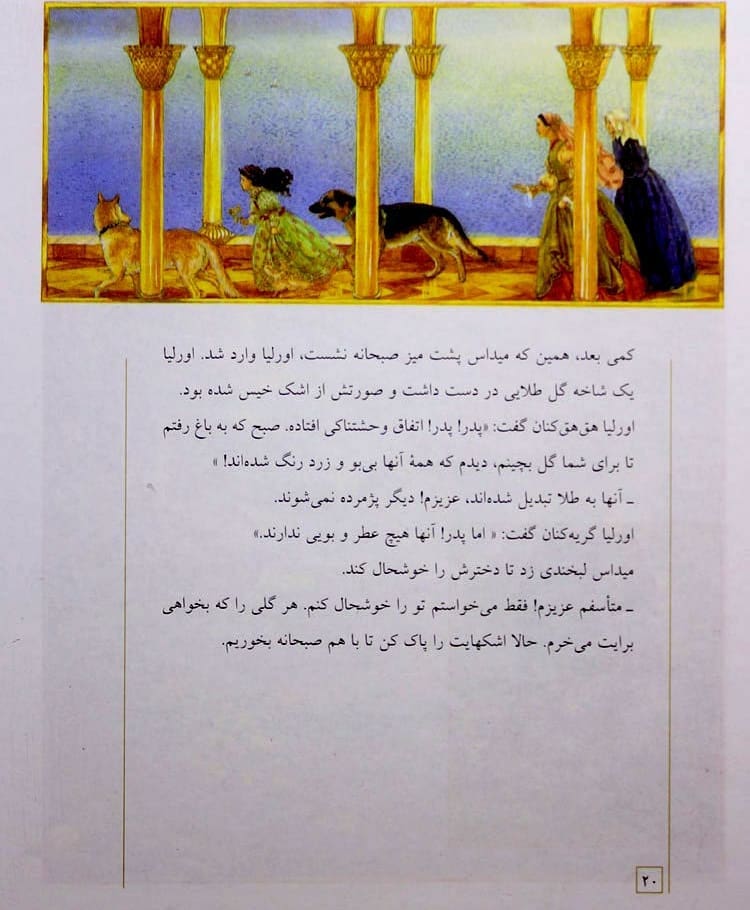 کمی بعد، همین که میداس پشت میز صبحانه نشست، اورلیا وارد شد. اورلیا
یک شاخه گل طلایی در دست داشت و صورتش از اشک خیس شده بود.
اورلیا هق‌هق‌کنان گفت: «پدر! پدر! اتفاق وحشتناکی افتاده. صبح که به باغ رفتم
تا برای شما گل بچینم، دیدم که همهٔ آنها بی‌بو و زرد رنگ شده‌اند! »
ـ آنها به طلا تبدیل شده‌اند، عزیزم! دیگر پژمرده نمی‌شوند.
اورلیا گریه‌کنان گفت: « اما پدر! آنها هیچ عطر و بویی ندارند.»
میداس لبخندی زد تا دخترش را خوشحال کند.
ـ متأسفم عزیزم! فقط می‌خواستم تو را خوشحال کنم. هر گلی را که بخواهی
برایت می‌خرم. حالا اشکهایت را پاک کن تا با هم صبحانه بخوریم.
۲۰